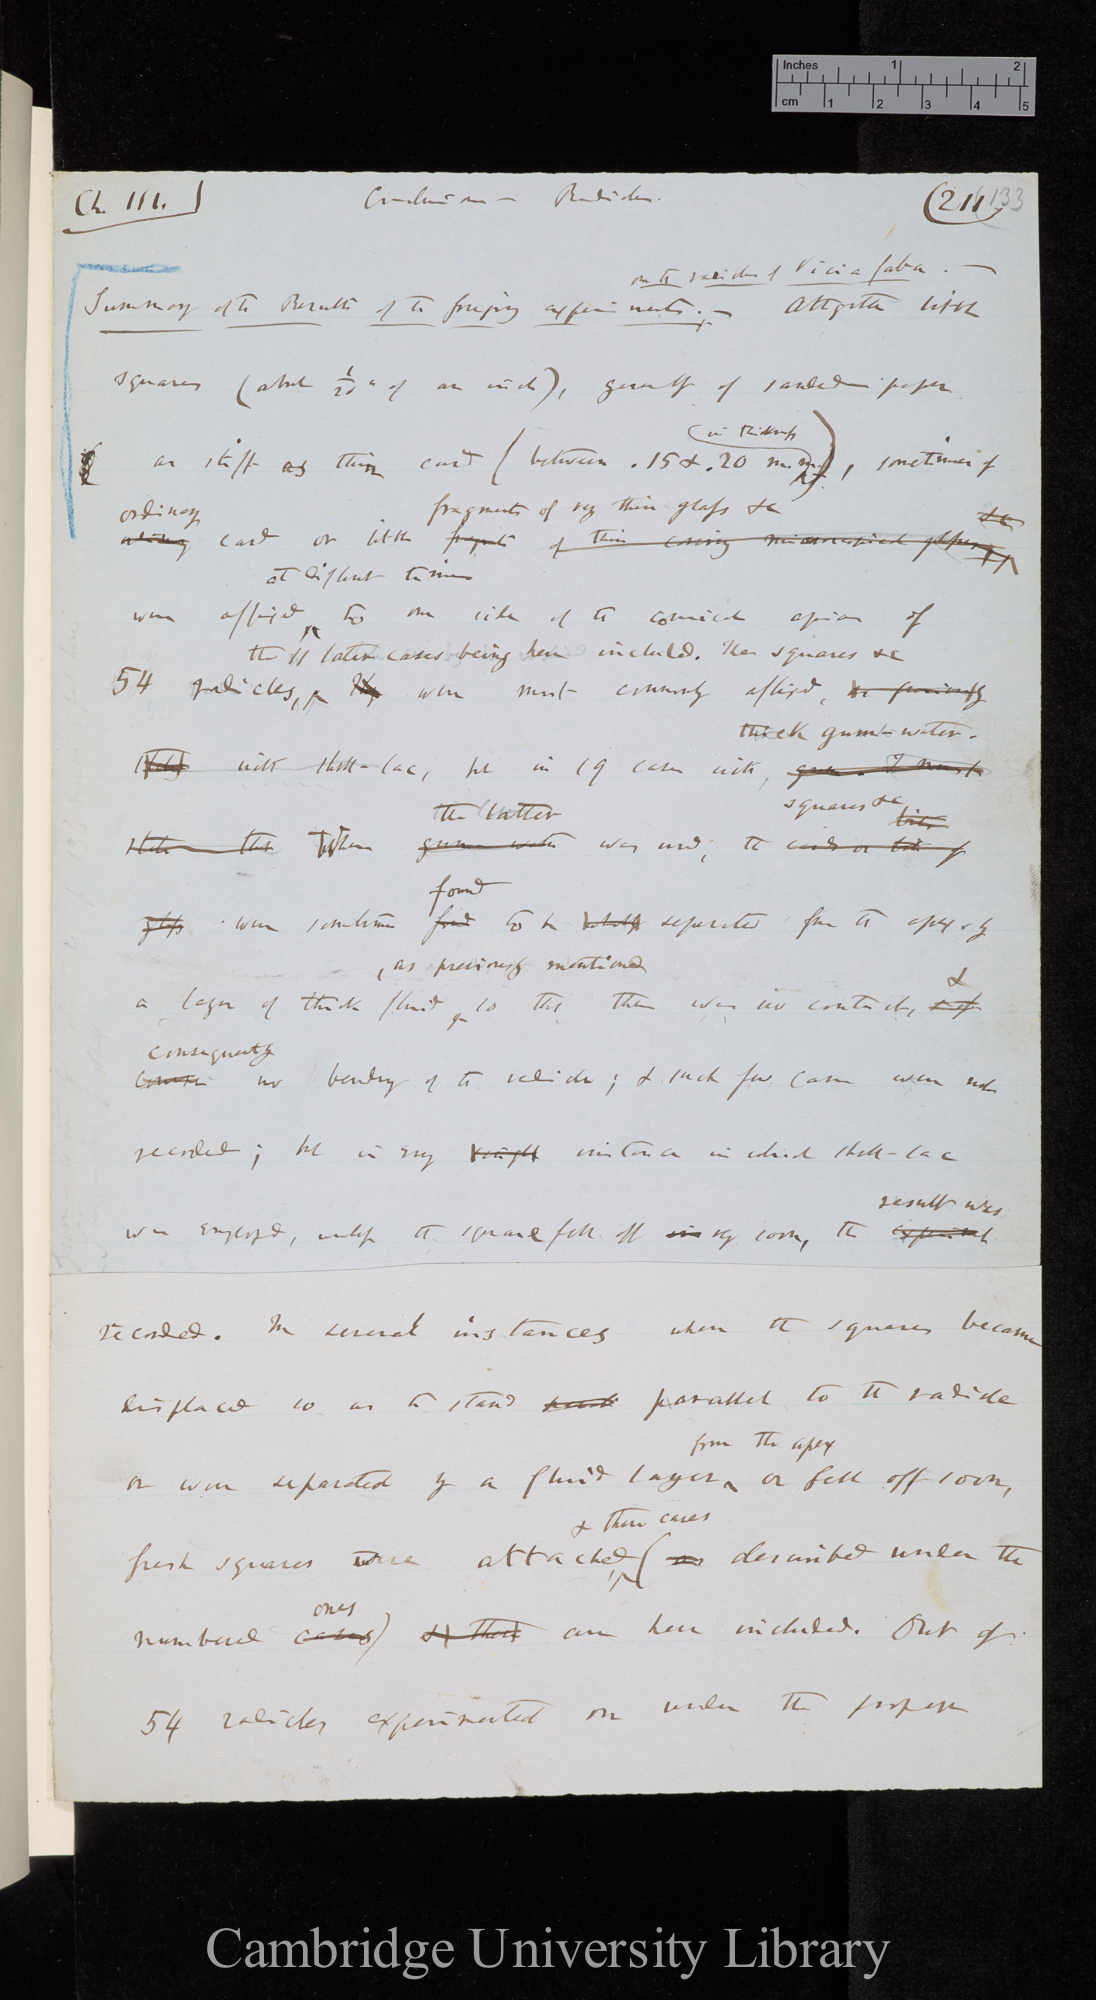 Inches 1 2
cm 1 2 3 4 5
Ch. III.
Conclusion — Radicles.
(211) 133
on the radicles of Vicia faba. —
Summary of the Results of the foregoing experiments. — Altogether little
squares (about 1/20th of an inch), generally of sanded paper
in thickness
as stiff as thin card (between .15 & .20 m.m.), sometimes of
ordinary fragments of very thin glass &c
card or little
at different times
were affixed to one side of the conical apex of
the 11 later cases being here included. The squares &c
54 radicles, were most commonly affixed,
thick gum-water.
with shell-lac, but in 19 cases with
the latter squares &c
When gum water was used, the cards or bits of
found
glass were sometimes found to be separated from the apex by
, as previously mentioned &
a layer of thick fluid, so that there was no contact,
consequently
no bending of the radicle; & such few cases were not
recorded; but in every instance in which shell-lac
result was
was employed, unless the square fell off very soon, the
recorded. In several instances when the squares became
displaced so as to stand parallel to the radicle
from the apex
or were separated by a fluid layer or fell off soon,
& these cases
fresh squares were attached, (as described under the
ones
numbered cases) & these are here included. Out of
54 radicles experimented on under the proper
Cambridge University Library